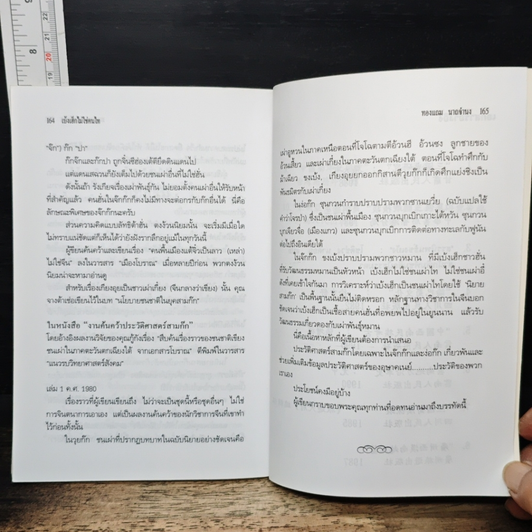 164 เบ้งเฮ็กไม่ใช่คนไท
"จ๊ก") ก๊ก "ปา"
ก๊กจ๊กและก๊กปา ถูกจิ๋นซีฮ่องเต้ตียึดดินแดนไป
แต่แดนแสฉวนก็ยังเต็มไปด้วยชนเผ่าอื่นที่ไม่ใช่ฮั่น
ดังนั้นถ้า รังเกียจเรื่องเผ่าพันธุ์กัน ไม่ยอมตั้งคนเผ่าอื่นให้รับหน้า
ที่สำคัญแล้ว คนฮั่นในจ๊กก๊กก็คงไม่มีทางจะต่อกรกับก๊กอื่นได้ นี่คือ
ลักษณะพิเศษของจ๊กก๊กนะครับ
ส่วนความคิดแบบลัทธิค้าฮั่น ตงง้วนนิยมนั้น จะเริ่มมีเมื่อใด
ไม่ทราบแน่ชัดแต่ก็เห็นได้ว่ายังฝังรากลึกอยู่แม้ในทุกวันนี้
ผู้เขียนค้นคว้าและเขียนเรื่อง "คนพื้นเมืองแท้จริงเป็นลาว (เหล่า)
ไม่ใช่จีน" ลงในวารสาร "เมืองโบราณ" เมื่อหลายปีก่อน พวกตงง้วน
นิยมน่าจะหามาอ่านดู
สำหรับเรื่องเกียงอุยเป็นชาวเผ่าเกี๋ยง (จีนกลางว่าเชียง) นั้น คุณ
จางต้าเข่อเขียนไว้ในบท "นโยบายชนชาติในยุคสามก๊ก"
ในหนังสือ "งานค้นคว้าประวัติศาสตร์สามก๊ก"
โดยอ้างอิงผลงานวิจัยของคุณกู้กังเรื่อง "สืบค้นเรื่องราวของชนชาติเชียง
ชนเผ่าในภาคตะวันตกเฉียงใต้ จากเอกสารโบราณ" ตีพิมพ์ในวารสาร
"แนวรบวิทยาศาสตร์สังคม"
เล่ม 1 ค.ศ. 1980
เรื่องราวที่ผู้เขียนเขียนถึง ไม่ว่าจะเป็นชุดนี้หรือชุดอื่นๆ ไม่ใช่
การจินตนาการเอาเอง แต่เป็นผลงานค้นคว้าของนักวิชาการจีนที่เขาทำ
ไว้ก่อนทั้งนั้น
ในวุยก๊ก ชนเผ่าที่ปรากฏบทบาทในฉบับนิยายอย่างชัดเจนคือ
ทองแถม นาถจำนง 165
เผ่าอูหวนในภาคเหนือตอนที่โจโฉตามตีอ้วนฮี อ้วนซง ลูกชายของ
อ้วนเสี้ยว และเผ่าเกี๋ยงในภาคตะวันตกเฉียงใต้ ตอนที่โจโฉทำศึกกับ
ม้าเฉียว ขงเบ้ง. เกียงอุยยกออกกิสานตีวุยก๊กก็เกิดศึกแย่งชิงเป็น
พันธมิตรกับเผ่าเกี๋ยง
ในง่อก๊ก ขุนนางกำราบปราบปรามพวกซานแยวีย (ฉบับแปลใช้
คำว่าโจรป่า) ซึ่งเป็นชนเผ่าพื้นเมือง ขุนกวนบุกเบิกเกาะไต้หวัน ขุนกวน
บุกเจียวจือ (เมืองแกว) และขุนกวนบุกเบิกการติดต่อทางทะเลกับฟูนัน
ต่อไปถึงอินเดียได้
ในจ๊กก๊ก ขงเบ้งปราบปรามพวกชาวหมาน ที่มีเบ้งเฮ็กชาวฮั่น
ที่รับวัฒนธรรมหมานเป็นหัวหน้า เบ้งเฮ็กไม่ใช่ชนเผ่าไท ไม่ใช่ชนเผ่าอี๋
ดังที่เคยเข้าใจกันมา การวิเคราะห์ว่าเบ้งเฮ็กเป็นชนเผ่าไทโดยใช้ "นิยาย
สามก๊ก" เป็นพื้นฐานนั้นเป็นไม้ติดหรอก หลักฐานทางวิชาการในจีนบอก
ชัดเจนว่าเบ้งเฮ็กเป็นเชื้อสายคนฮั่นที่อพยพไปอยู่ในยูนนาน แล้วรับ
วัฒนธรรมเกี่ยวดองกับเผ่าพันธุ์หมาน
นี่คือเนื้อหาหลักที่ผู้เขียนต้องการนำเสนอ
ประวัติศาสตร์สามก๊กโดยเฉพาะในจ๊กก๊กและง่อก๊ก เกี่ยวพันและ
ช่วยเพิ่มเติมข้อมูลประวัติศาสตร์ของอุษาคเนย์..........ประวัติของพวก
เราเอง
ประโยชน์คงมีอยู่บ้าง
ผู้เขียนกราบขอบพระคุณทุกท่านที่อดทนอ่านมาถึงบรรทัดนี้